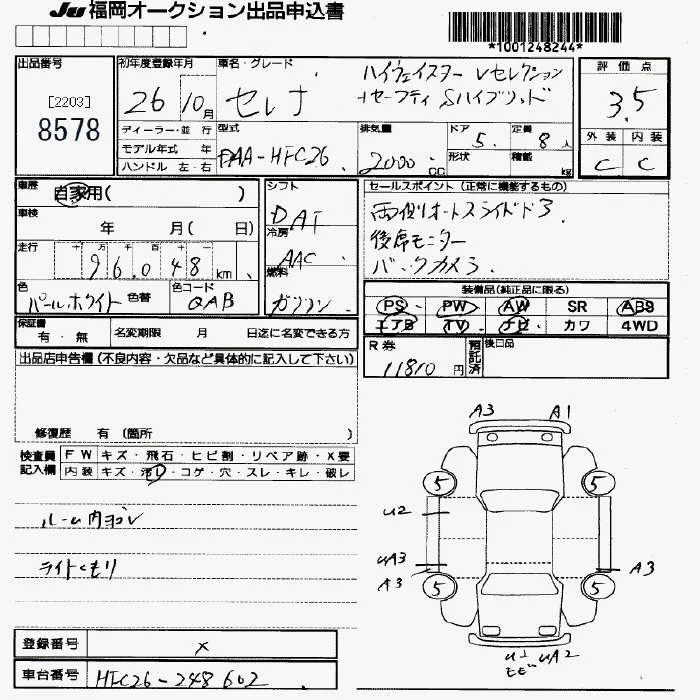 Ju 福岡オークション出品申込書
*1001248244*
出品番号
[2203]
8578
初年度登録年月
26 10月
車名・グレード
セレナ
ハイウェイスター Vセレクション
+セーフティ Sハイブリッド
評価点
3.5
外装 内装
C C
ディーラー・並行
モデル年式 年
ハンドル 左・右
型式
DAA-HFC26
排気量
2000 CC
ドア
5
定員
8 人
形状
積載
kg
車歴
自家用( )
車検
年 月( 日)
走行
十 万 千 百 十 一
96,048 km
色
パールホワイト
色替
色コード
QAB
シフト
DAT
冷房
AAC
燃料
ガソリン
セールスポイント (正常に機能するもの)
両側オートスライドドア
後席モニター
バックカメラ
装備品(純正品に限る)
PS PW AW SR ABS
エアB TV ナビ カワ 4WD
保証書
有・無
名変期限 月 日迄に名変できる方
R券
11810 円
預託済
後日品
出品店申告欄 (不良内容・欠品など具体的に記入して下さい)
修復歴 有 (箇所 )
検査員
記入欄
FW キズ・飛石・ヒビ割・リペア跡・X要
内装 キズ・汚レ・コゲ・穴・スレ・キレ・破レ
ルーム内ヨゴレ
ライトくもり
A3 A1
5 5
U2
UA3
A3 A3
5 5
UA2
ヒビ
登録番号
×
車台番号
HFC26-248602